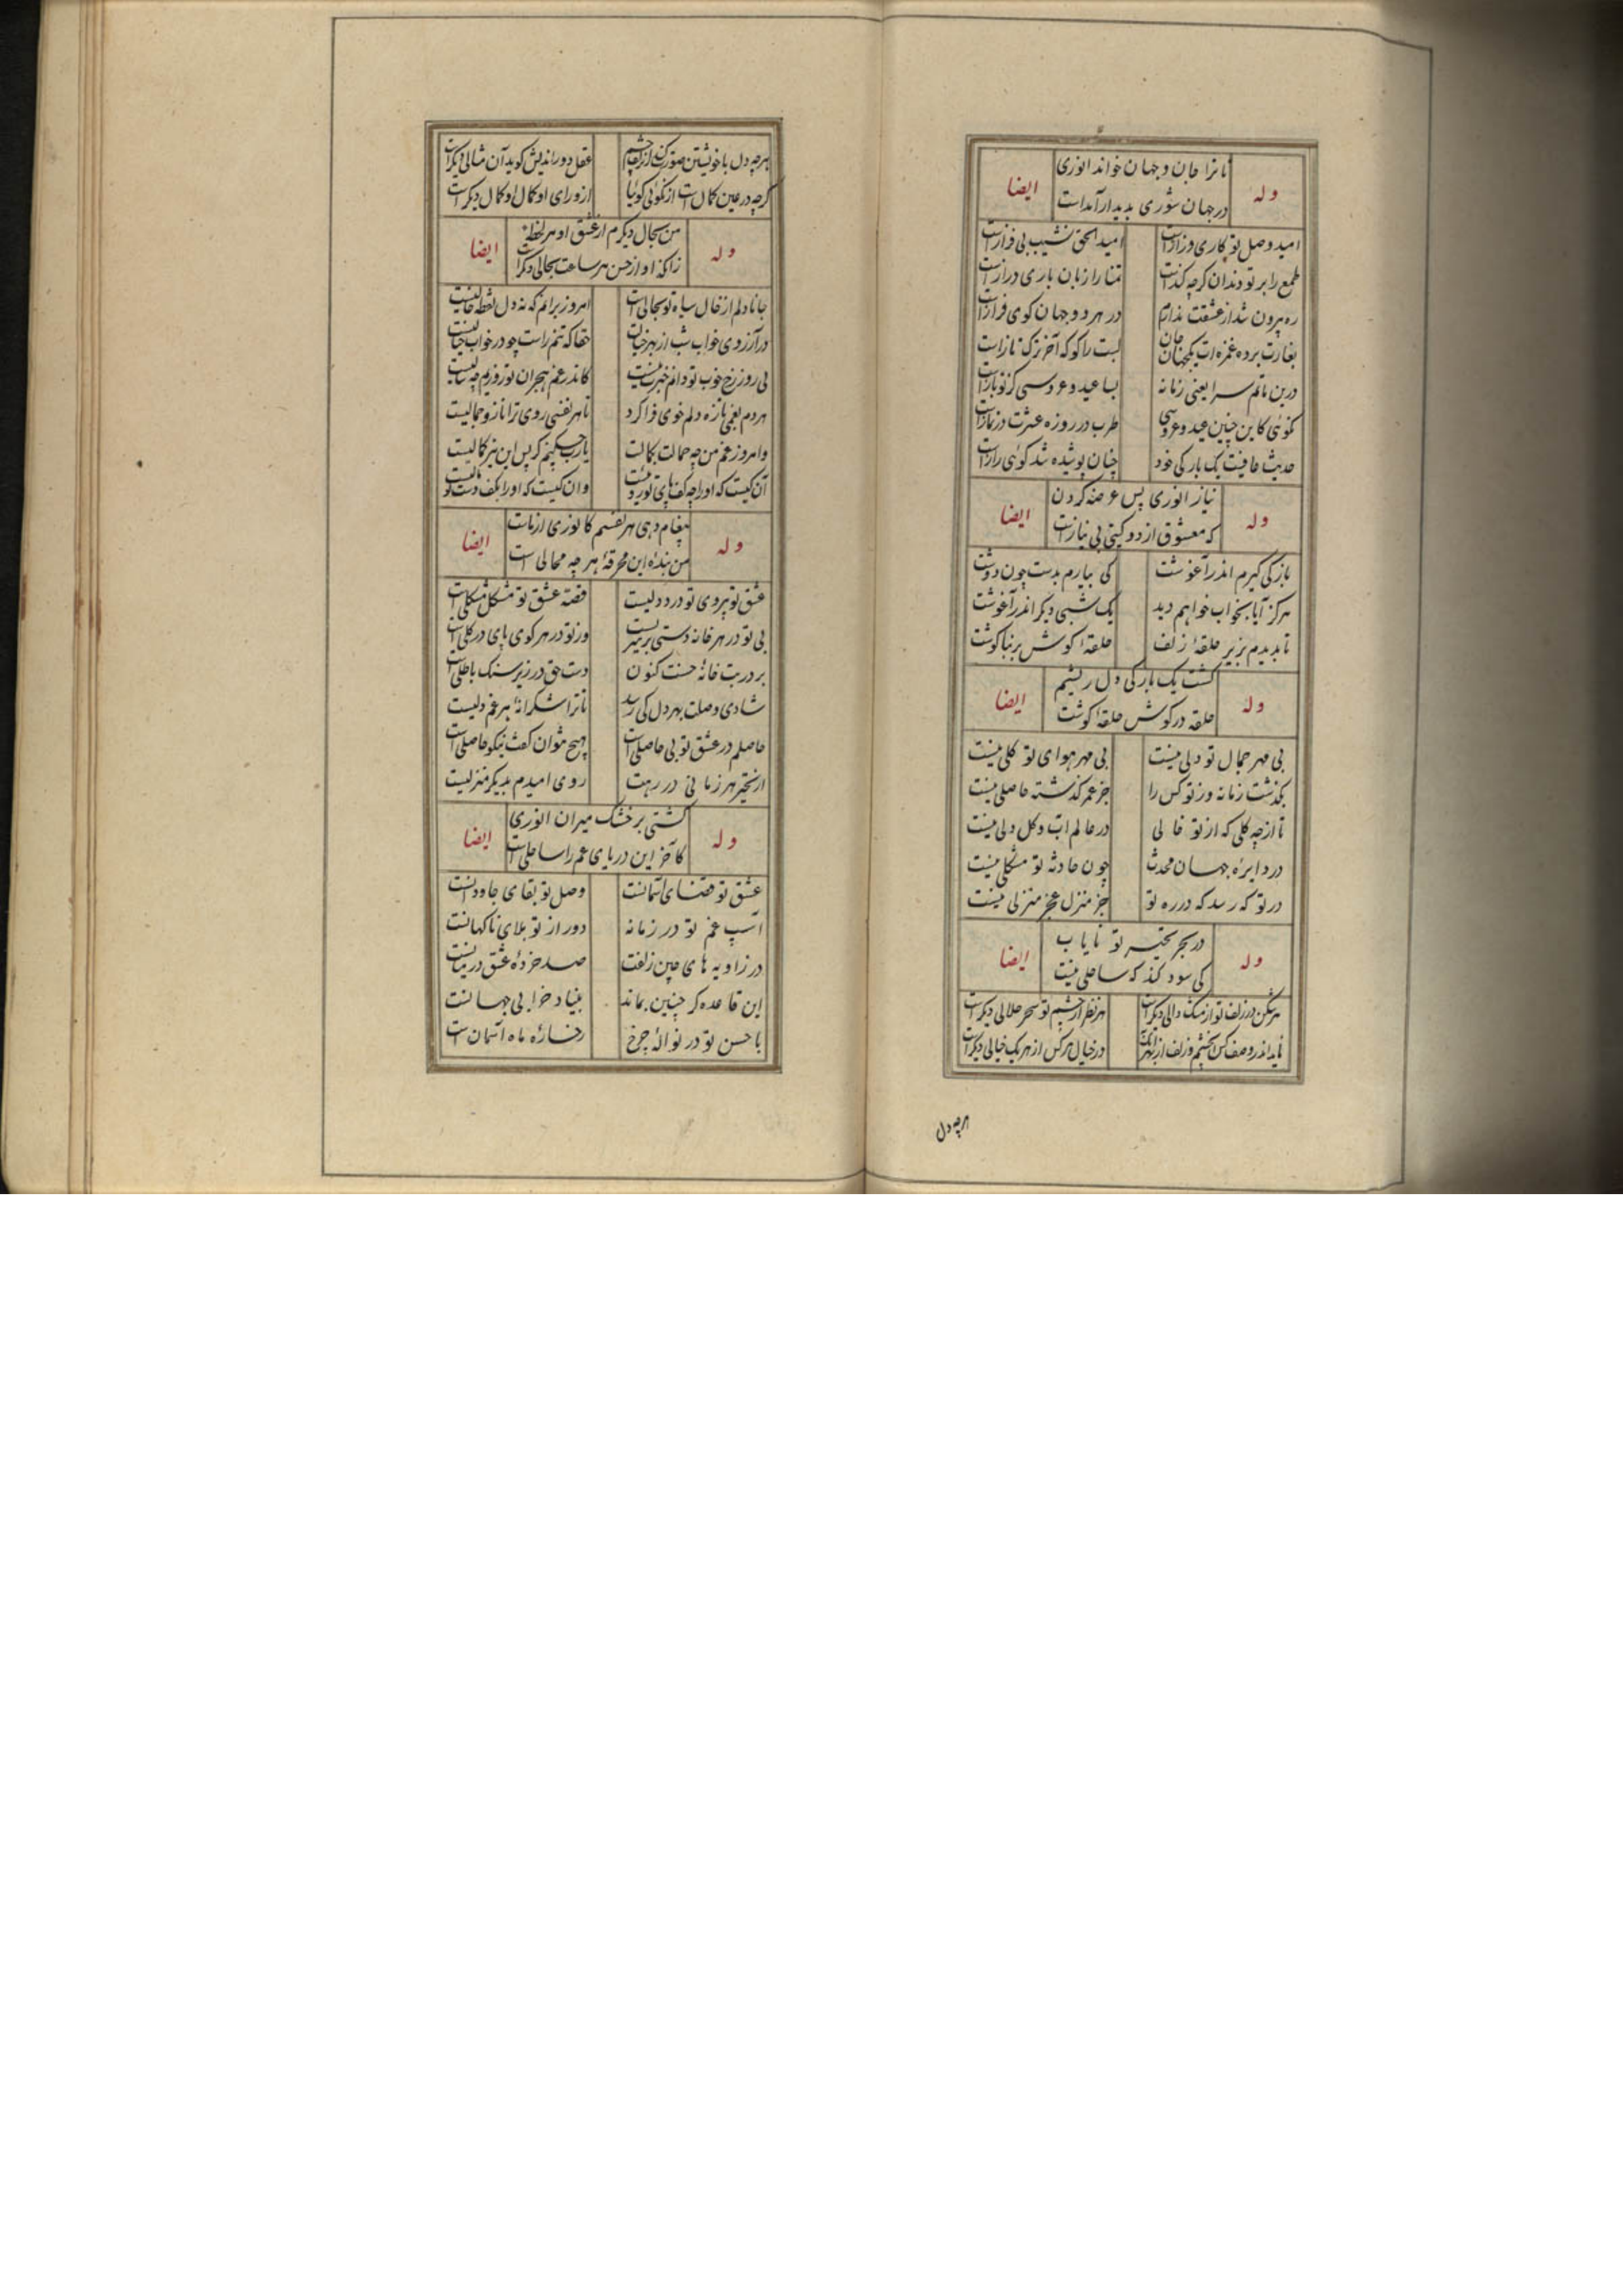 تا ترا جان و جهان خواند انوری
وله ایضا
در جهان شوری پدیدار آمداست
امید وصل تو کاری درازاست امید الحق نشیب بی فرازاست
طمع را بر تو دندان کرچه کندست تمنا را زبان باری درازاست
ره بیرون شد از عشقت ندانم در هر دو جهان کوی فرازاست
بغارت برده غمزه‌ات یکجهان جان لبت را کو که آخر ترکتازاست
درین ماتم سرا یعنی زمانه بسا عید و عروسی کز تو بازاست
کوئی کاین چنین عید و عروسی طرب در روزه عشرت در نمازاست
حدیث عافیت یک بارکی خود چنان پوشیده شد کوئی رازاست
نیاز انوری پس عرضه کردن
وله ایضا
که معشوق از دو کیتی بی نیازاست
بازکی کیرم اندر آغوشت کی بیارم بدست چون دوشت
هرکز آیا بخواب خواهم دید یک شبی دیکر اندر آغوشت
تا بدیدم بزیر حلقهٔ زلف حلقهٔ کوش بر بناکوشت
کشت یک بارکی دل ریشم
وله ایضا
حلقه در کوش حلقهٔ کوشت
بی مهر جمال تو دلی نیست بی مهر هوای تو کلی نیست
بکذشت زمانه وز تو کس را جز عمر کذشته حاصلی نیست
تا از چه کلی که از تو خالی در عالم آب و کل دلی نیست
در دایره جهان محدث چون حادثه تو مشکلی نیست
در تو که رسد که در ره تو جز منزل عجز منزلی نیست
در بحر تحیر تو نایاب
وله ایضا
کی سود کند که ساحلی نیست
هر شکن در زلف تو از مشک دالی دیکراست هر نظر از چشم تو سحر حلالی دیکراست
ناید اندر وصف کس چشم و زلف از بهر آنک در خیال هرکس از هر یک خیالی دیکراست
هرچه دل
هرچه دل با خویشتن صورت کند زان زلف و چشم عقل دوراندیش کوید آن مثالی دیکراست
کرچه در عین کمال است از نکوئی کوئیا از ورای او کمال او کمال دیکراست
من بحال دیکرم از عشق او هر لحظه
وله ایضا
زانکه او از حسن هر ساعت بحالی دیکراست
جانا دلم از خال سیاه تو بحالی است امروز برانم که نه دل نقطه خالیست
در آرزوی خواب شب از بهر خیالت حقا که تنم راست چو در خواب خیالیست
بی روز رخ خوب تو دانم خبرت نیست کاندر غم هجران تو روزیم چه سالیست
هر دم بغمی تازه دلم خوی فرا کرد تا هر نفسی روی ترا تازه جمالیست
وامروز غم من چه جمالت بکمالست یارب چکنم کر پس این نیز کمالیست
آن کیست که او را چه کف پای تو رو نیست وان کیست که او را بکف دست تو مالیست
پیغام دهی هر نفسم کانوری از ماست
وله ایضا
من بندهٔ این مخرقهٔ هرچه محالی است
عشق تو بیروی تو درد دلیست قصه عشق تو مشکل مشکلی است
بی تو در هر خانه دستی بر سریست وز تو در هر کوی پای در کلی است
بر در بت خانهٔ حسنت کنون دست حق در زیر سنک باطلی است
شادی وصلت بهر دل کی رسد تا ترا شکرانه بر غم دلیست
حاصلم در عشق تو بی حاصلی است هیچ نتوان کفت نیکو حاصلی است
از تحیر هر زمانی در رهت روی امیدم بدیکر منزلیست
کشتی بر خشک میران انوری
وله ایضا
کآخر این دریای غم را ساحلی است
عشق تو قضای آسمانست وصل تو بقای جاودانست
آسیب غم تو در زمانه دور از تو بلای ناکهانست
در زاویه های چین زلفت صد خردهٔ عشق در میانست
این قاعده کر چنین بماند بنیاد خرابی جهانست
با حسن تو در نوالهٔ چرخ رخسارهٔ ماه استخوان است